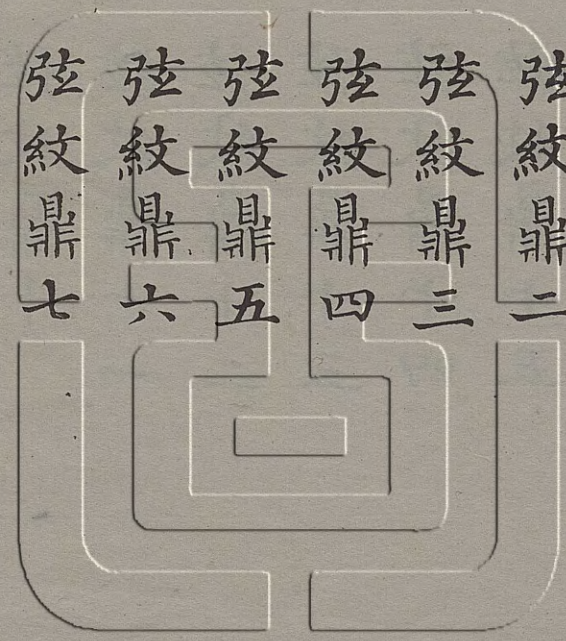 弦紋鼎二
弦紋鼎三
弦紋鼎四
弦紋鼎五
弦紋鼎六
弦紋鼎七